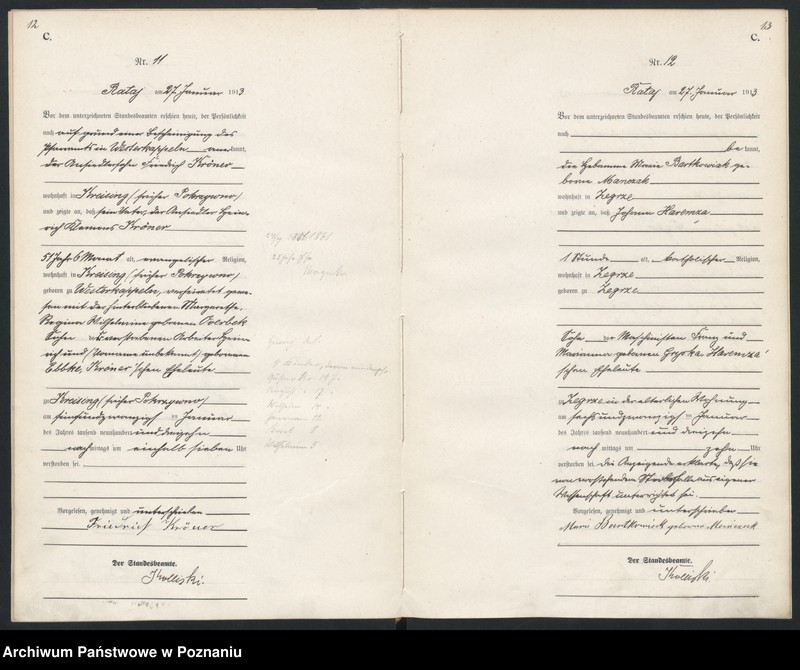 12
C.
Nr. 11
Rataj am 27. Januar 1913
Vor dem unterzeichneten Standesbeamten erschien heute, der Persönlichkeit
nach auf grund einer Bescheinigung des
Pfarramts in Westerkappeln anerkannt,
der Ansiedlersohn Friedrich Kröner
wohnhaft in Kreising (früher Pokrzywno)
und zeigte an, daß sein Vater, der Ansiedler Hein-
rich Klemens Kröner
51 Jahr 6 Monat alt, evangelischer Religion,
wohnhaft in Kreising (früher Pokrzywno)
geboren zu Westerkappeln, verheiratet gewe-
sen mit der hinterbliebenen Margarethe,
Regina Wilhelmine geborenen Overbek
Sohn des verstorbenen Arbeiter Hein-
rich und (Vorname unbekannt) geborene
Ebbke, Kröner'schen Eheleute
zu Kreising (früher Pokrzywno)
am fünfundzwanzigsten Januar
des Jahres tausend neunhundert und dreizehn
nachmittags um einhalb sieben Uhr
verstorben sei.
Vorgelesen, genehmigt und unterschrieben
Friedrich Kröner
Der Standesbeamte.
13
C.
Nr. 12
Rataj am 27. Januar 1913
Vor dem unterzeichneten Standesbeamten erschien heute, der Persönlichkeit
nach
bekannt,
die Hebamme Marie Bartkowiak ge-
borene Manczak
wohnhaft in Zegrze
und zeigte an, daß Johann Haremza
1 Stunde alt, katholischer Religion,
wohnhaft in Zegrze
geboren zu Zegrze
Sohn des Maschinisten Franz und
Marianna geborenen Haremza'
schen Eheleute
zu Zegrze in der elterlichen Wohnung
am sechsundzwanzigsten Januar
des Jahres tausend neunhundert und dreizehn
nachmittags um zehn Uhr
verstorben sei. Die Anzeigende erklärte, daß sie
von vorstehendem Sterbefalle aus eigener
Wissenschaft unterrichtet sei.
Vorgelesen, genehmigt und unterschrieben
Marie Bartkowiak geborene Manczak
Der Standesbeamte.
Archiwum Państwowe w Poznaniu